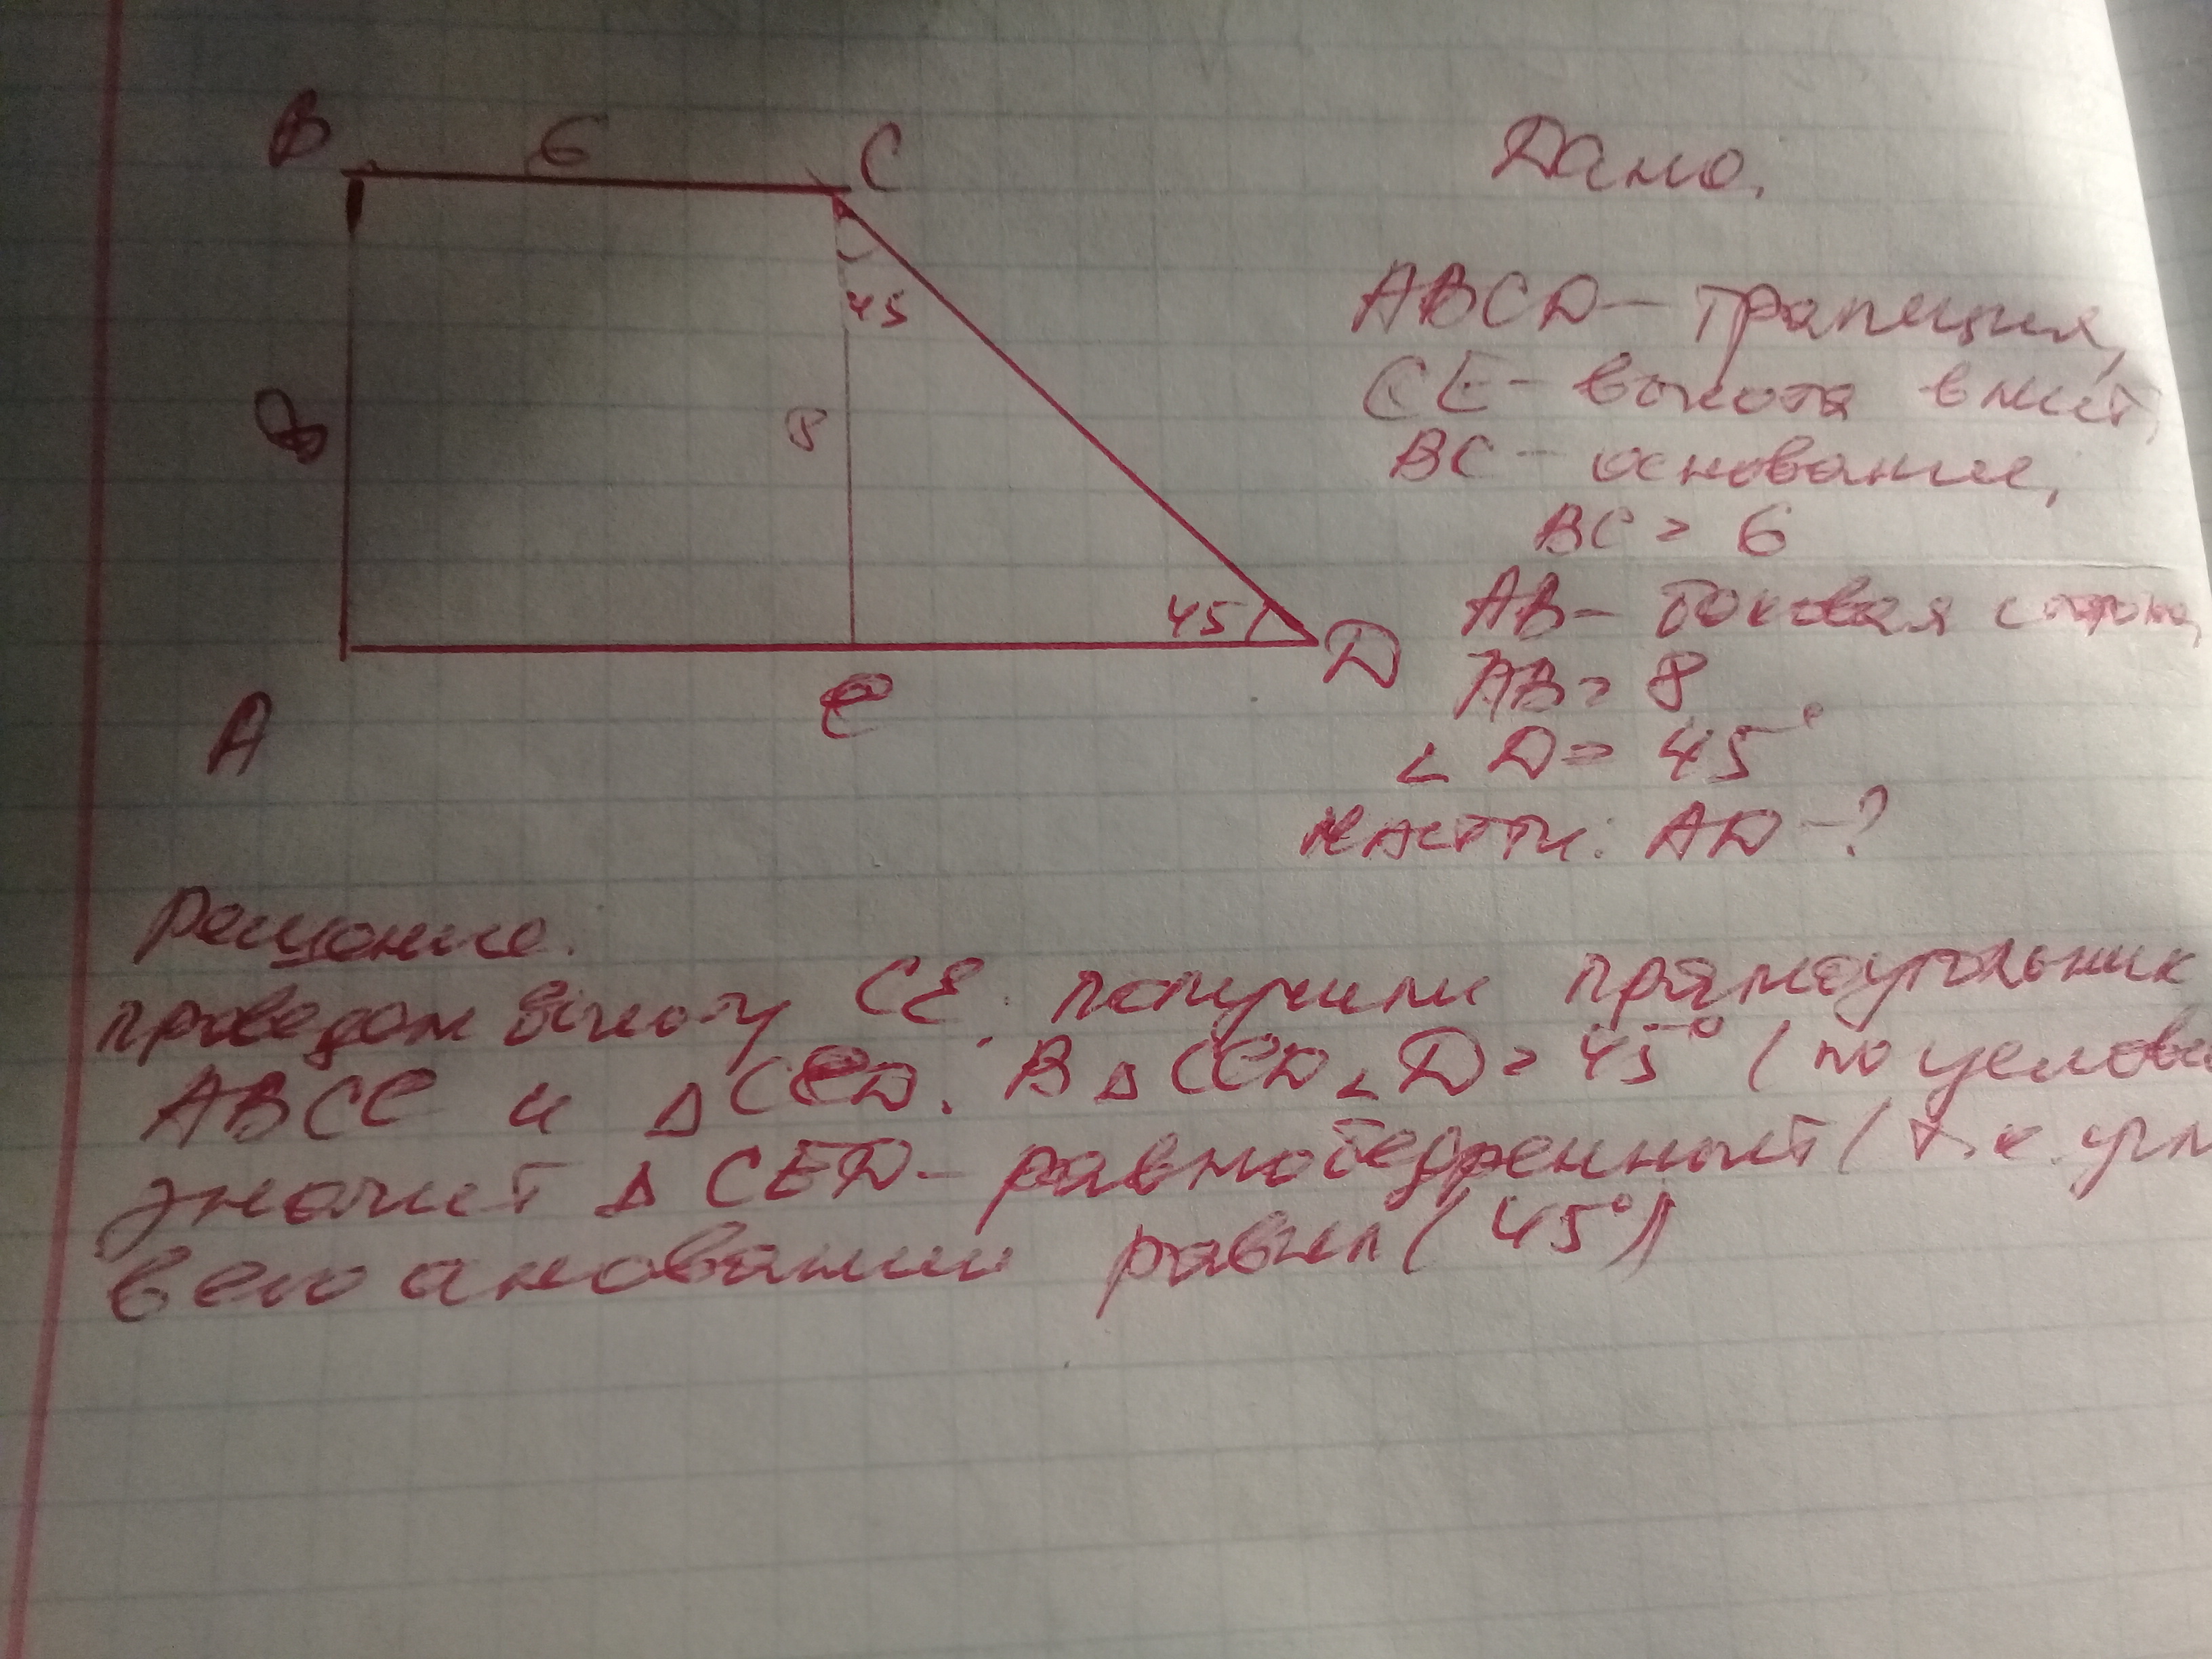 B 6 C
Дано,
ABCD – трапеция,
45
CE – высота
8 8
BC – основание,
BC = 6
AB – боковая
45 D
AB = 8
A e
∠ D = 45°
Найти: AD – ?
Решение.
проведем высоту CE. получили прямоугольник
ABCE и △ CED. В △ CED ∠ D = 45° (по
значит △ CED – равнобедренный (т.к.
в его основании равны (45°)